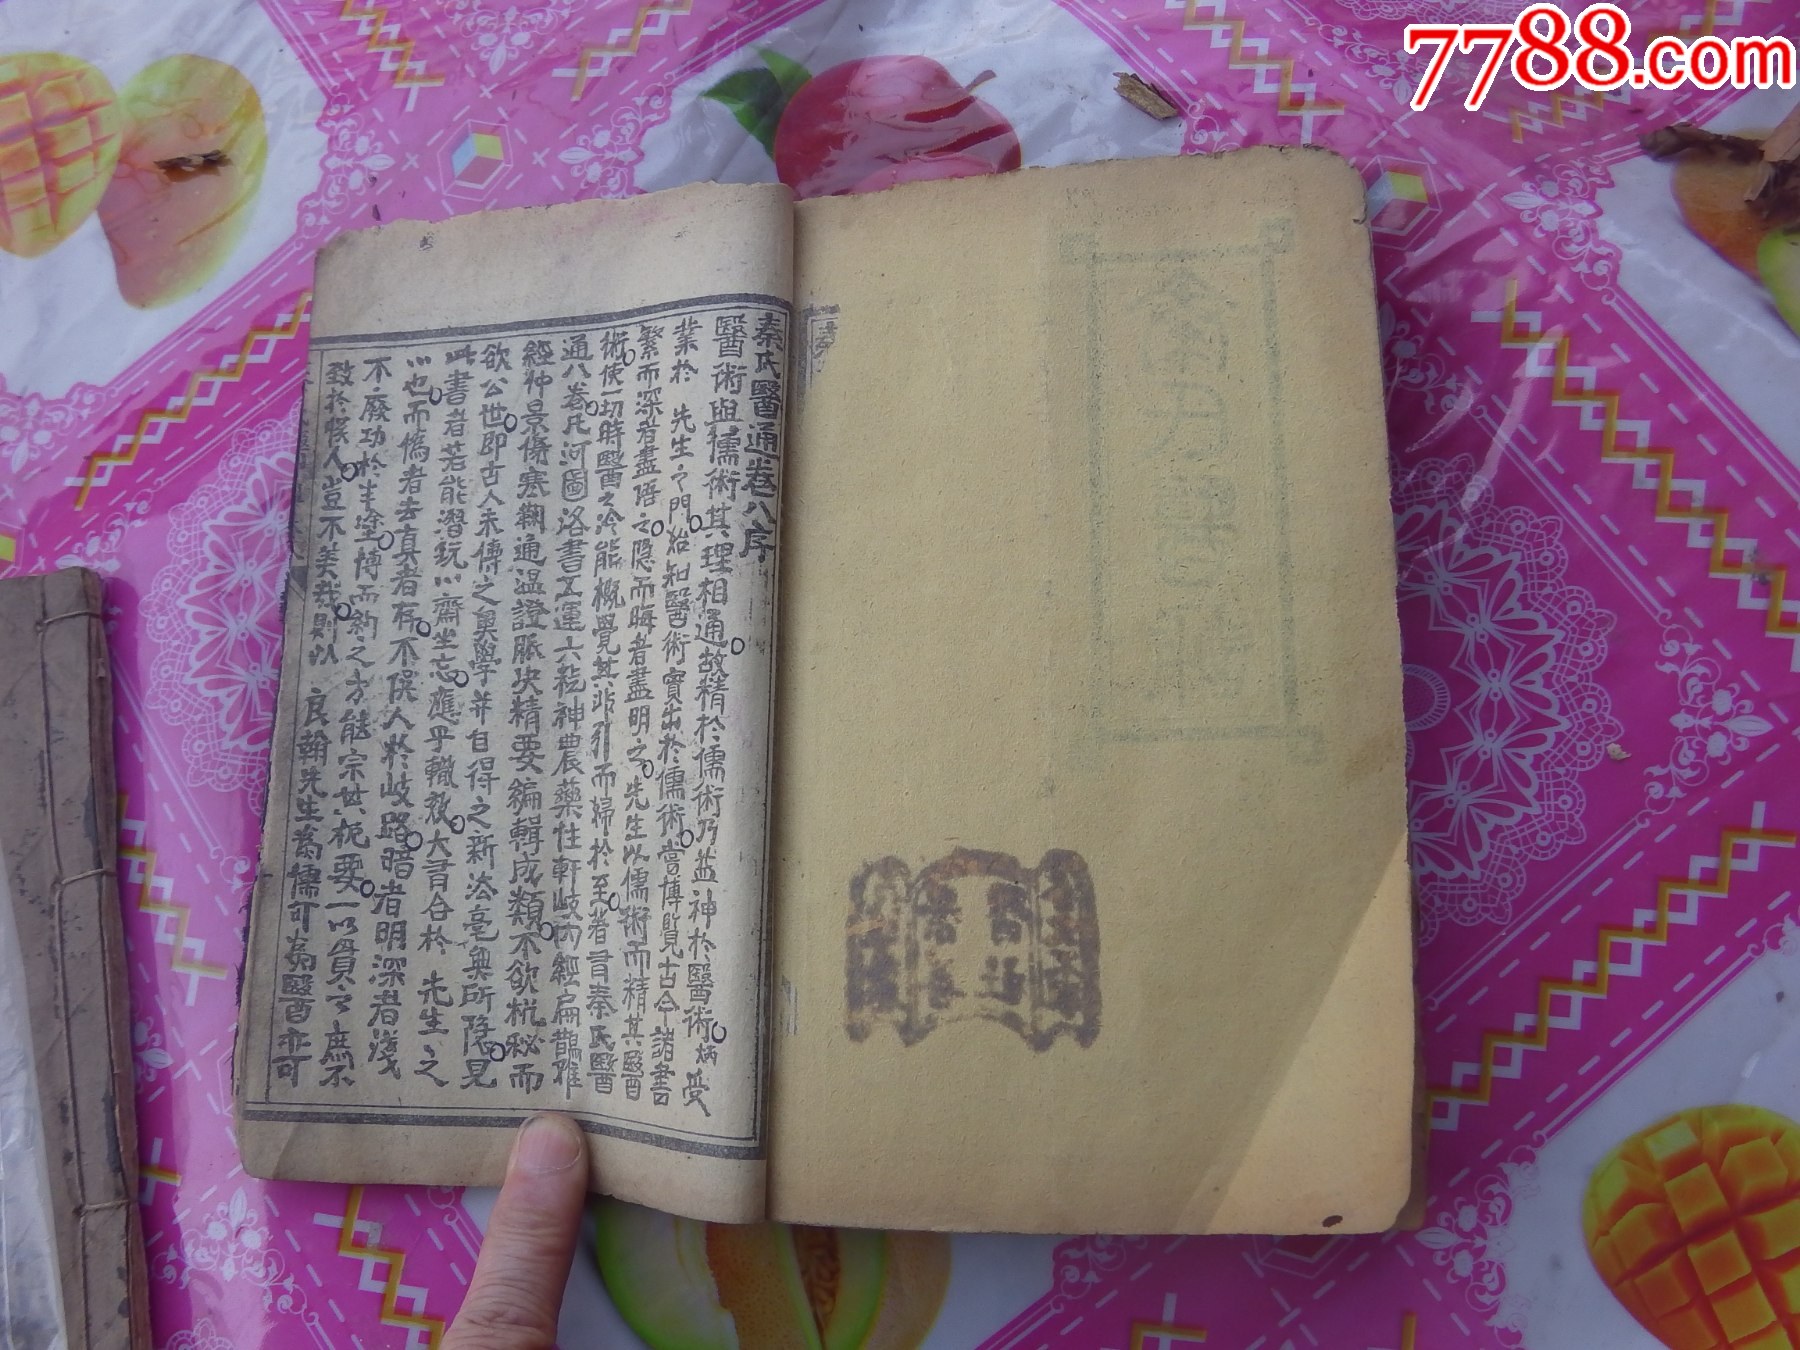 7788.com
秦氏醫通卷八序
醫術與儒術其理相通故精於儒術乃益神於醫術炳受
業於 先生之門始知醫術實出於儒術嘗博覽古今諸書
繁而深者盡語之隱而晦者盡明之先生以儒術而精其醫
術使一切時醫之冷能概覺其非引而歸於至著書秦氏醫
通八卷凡河圖洛書五運六 神農藥性軒岐內經扁鵲雅
經仲景傷寒 通温證脈訣精要編輯成類不欲枕秘而
欲公世即古人未傳之奧學并自得之新法毫無所隱見
此書者若能潛玩以齋坐忘應乎轍效大書合於 先生之
心也而偽者去真者存不俁人於岐路暗者明深者淺
不廢功於半塗博而約之方能宗其枢要一以貫之庶不
致於悮人豈不美哉則以 良翰先生為儒可為醫亦可